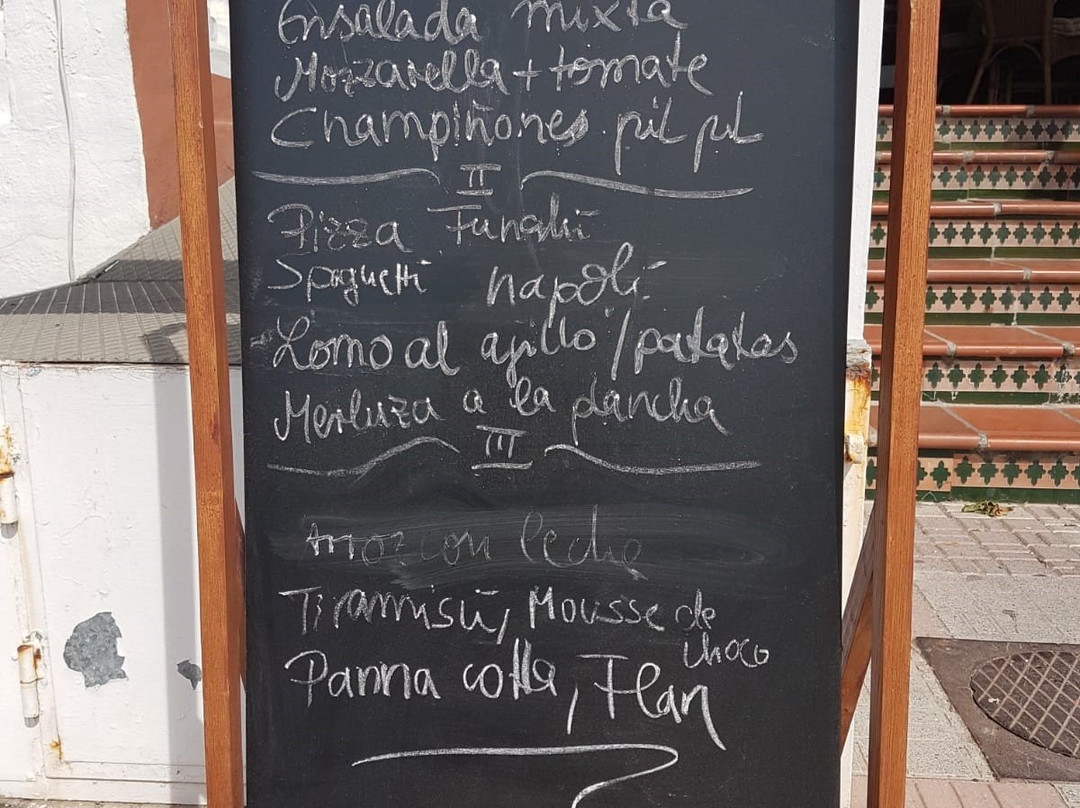 Ensalada mixta
Mozzarella + tomate
Champiñones pil pil
II
Pizza Funghi
Spaguetti napoli
Lomo al ajillo / patatas
Merluza a la plancha
III
Arroz con leche
Tiramisú, Mousse de
choco
Panna cotta, Flan